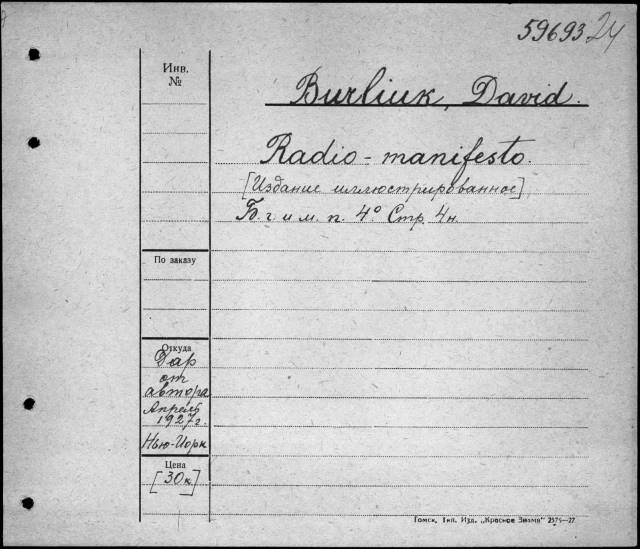 5969324
Инв.
№
Burliuk, David.
Radio-manifesto.
[Издание иллюстрированное]
Б. г и м. п. 4° Стр. 4н.
По заказу
Откуда
Дар
от
автора
Апрель
1927г.
Нью-Иорк
Цена
[30к]
Томск, Тип. Изд. „Красное Знамя" 2575—27